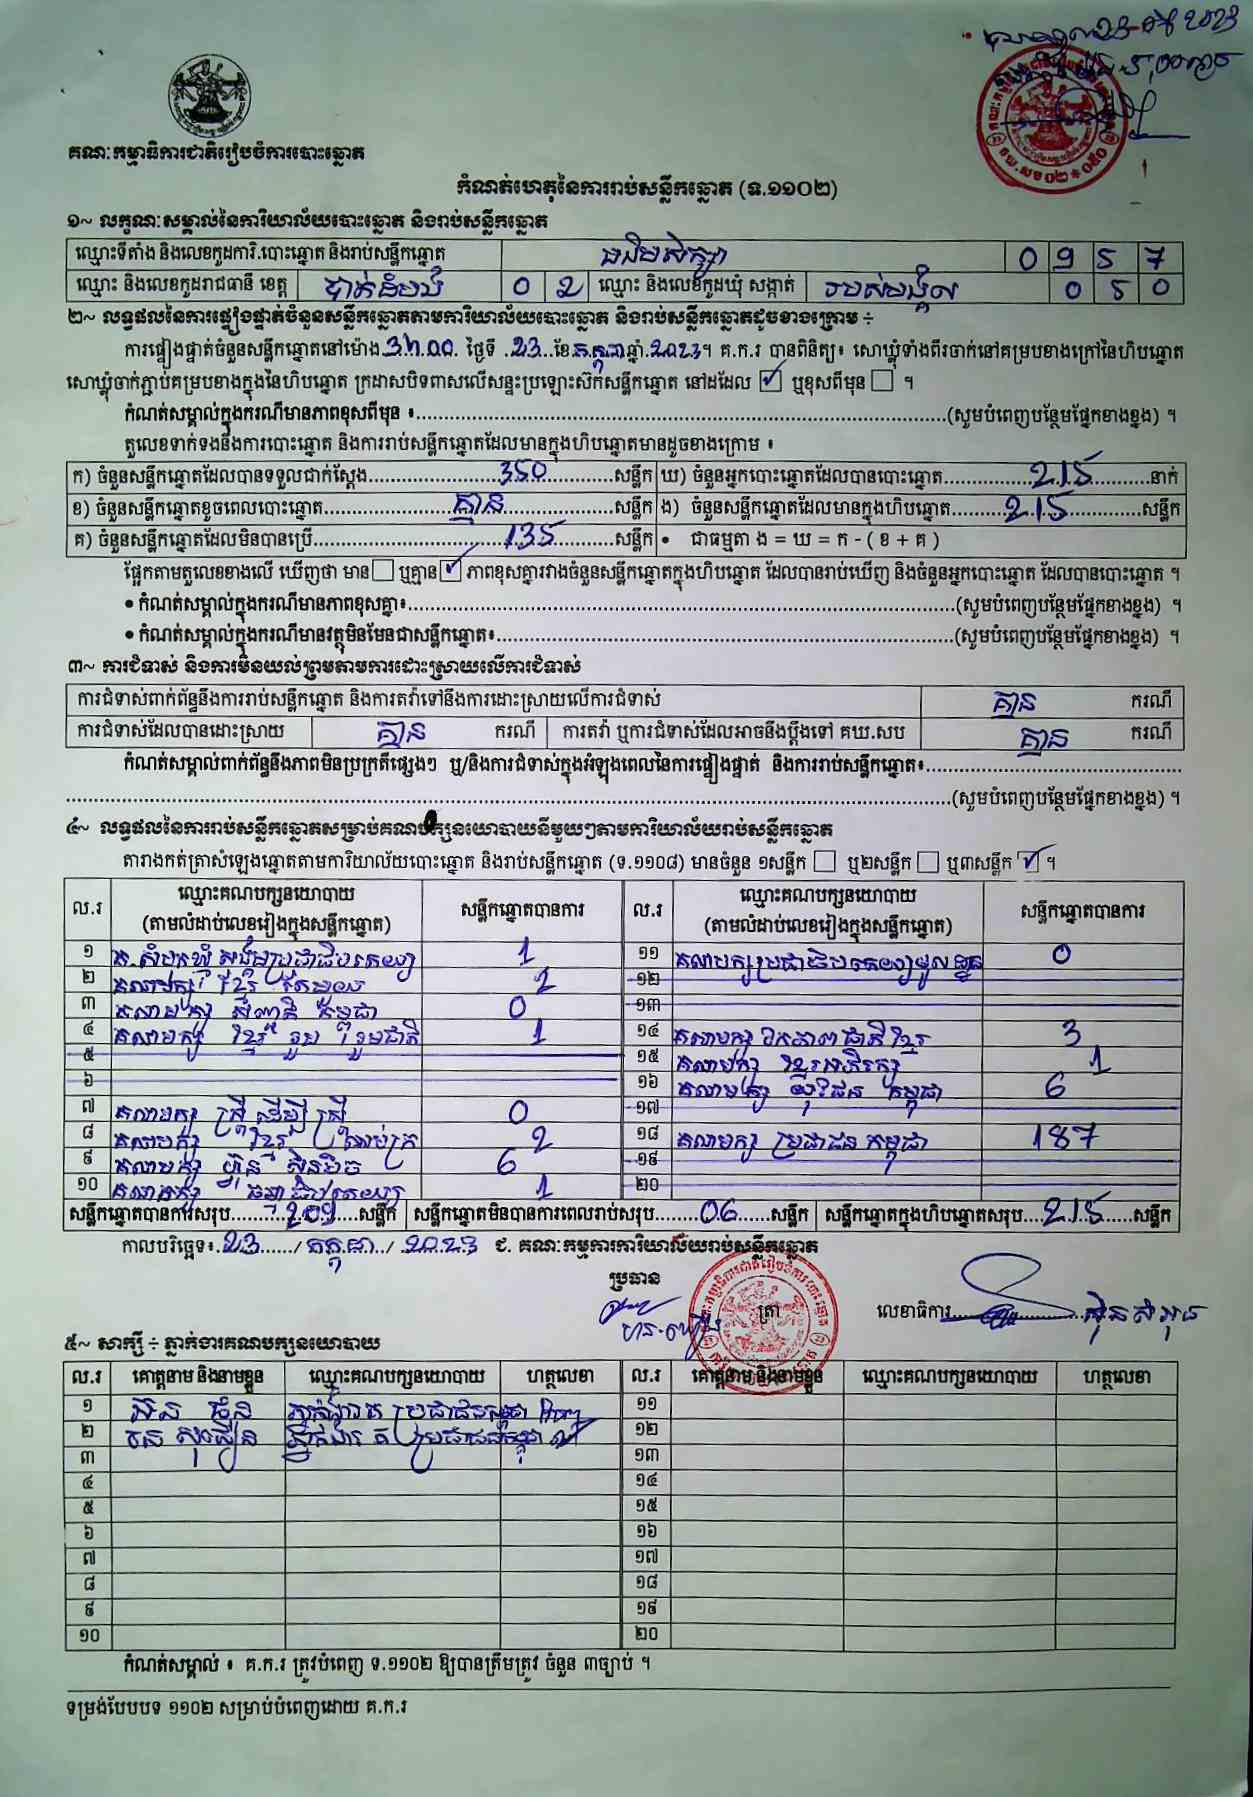 គណៈកម្មាធិការជាតិរៀបចំការបោះឆ្នោត
កំណត់ហេតុនៃការរាប់សន្លឹកឆ្នោត (ទ.១១០២)
១~ លក្ខណៈសម្គាល់នៃការិយាល័យបោះឆ្នោត និងរាប់សន្លឹកឆ្នោត
ឈ្មោះទីតាំង និងលេខកូដការិ.បោះឆ្នោត និងរាប់សន្លឹកឆ្នោត 0957
ឈ្មោះ និងលេខកូដរាជធានី ខេត្ត បាត់ដំបង 02 ឈ្មោះ និងលេខកូដឃុំ សង្កាត់ របស់មង្គល 050
២~ លទ្ធផលនៃការផ្ទៀងផ្ទាត់ចំនួនសន្លឹកឆ្នោតតាមការិយាល័យបោះឆ្នោត និងរាប់សន្លឹកឆ្នោតដូចខាងក្រោម ÷
ការផ្ទៀងផ្ទាត់ចំនួនសន្លឹកឆ្នោតនៅម៉ោង 3h.00 ថ្ងៃទី 23 ខែ កក្កដា ឆ្នាំ 2023។ គ.ក.រ បានពិនិត្យ៖ សោឃ្លុំទាំងពីរចាក់នៅគម្របខាងក្រៅនៃហិបឆ្នោត
សោឃ្លុំចាក់ភ្ជាប់គម្របខាងក្នុងនៃហិបឆ្នោត ក្រដាសបិទពាសលើសន្ទះប្រឡោះស៊កសន្លឹកឆ្នោត នៅដដែល ☑ ឬខុសពីមុន ☐ ។
កំណត់សម្គាល់ក្នុងករណីមានភាពខុសពីមុន ៖ (សូមបំពេញបន្ថែមផ្នែកខាងខ្នង) ។
តួលេខទាក់ទងនឹងការបោះឆ្នោត និងការរាប់សន្លឹកឆ្នោតដែលមានក្នុងហិបឆ្នោតមានដូចខាងក្រោម ៖
ក) ចំនួនសន្លឹកឆ្នោតដែលបានទទួលជាក់ស្ដែង 350 សន្លឹក ឃ) ចំនួនអ្នកបោះឆ្នោតដែលបានបោះឆ្នោត 215 នាក់
ខ) ចំនួនសន្លឹកឆ្នោតខូចពេលបោះឆ្នោត គ្មាន សន្លឹក ង) ចំនួនសន្លឹកឆ្នោតដែលមានក្នុងហិបឆ្នោត 215 សន្លឹក
គ) ចំនួនសន្លឹកឆ្នោតដែលមិនបានប្រើ 135 សន្លឹក • ជាធម្មតា ង = ឃ = ក - ( ខ + គ )
ផ្អែកតាមតួលេខខាងលើ ឃើញថា មាន ☐ ឬគ្មាន ☑ ភាពខុសគ្នារវាងចំនួនសន្លឹកឆ្នោតក្នុងហិបឆ្នោត ដែលបានរាប់ឃើញ និងចំនួនអ្នកបោះឆ្នោត ដែលបានបោះឆ្នោត ។
• កំណត់សម្គាល់ក្នុងករណីមានភាពខុសគ្នា៖ (សូមបំពេញបន្ថែមផ្នែកខាងខ្នង) ។
• កំណត់សម្គាល់ក្នុងករណីមានវត្ថុមិនមែនជាសន្លឹកឆ្នោត៖ (សូមបំពេញបន្ថែមផ្នែកខាងខ្នង) ។
៣~ ការជំទាស់ និងការមិនយល់ព្រមតាមការដោះស្រាយលើការជំទាស់
ការជំទាស់ពាក់ព័ន្ធនឹងការរាប់សន្លឹកឆ្នោត និងការតវ៉ាទៅនឹងការដោះស្រាយលើការជំទាស់ គ្មាន ករណី
ការជំទាស់ដែលបានដោះស្រាយ គ្មាន ករណី ការតវ៉ា ឬការជំទាស់ដែលអាចនឹងប្ដឹងទៅ គឃ.សប គ្មាន ករណី
កំណត់សម្គាល់ពាក់ព័ន្ធនឹងភាពមិនប្រក្រតីផ្សេងៗ ឬ/និងការជំទាស់ក្នុងអំឡុងពេលនៃការផ្ទៀងផ្ទាត់ និងការរាប់សន្លឹកឆ្នោត៖
(សូមបំពេញបន្ថែមផ្នែកខាងខ្នង) ។
៤~ លទ្ធផលនៃការរាប់សន្លឹកឆ្នោតសម្រាប់គណបក្សនយោបាយនីមួយៗតាមការិយាល័យរាប់សន្លឹកឆ្នោត
តារាងកត់ត្រាសំឡេងឆ្នោតតាមការិយាល័យបោះឆ្នោត និងរាប់សន្លឹកឆ្នោត (ទ.១១០៨) មានចំនួន ១សន្លឹក ☐ ឬ២សន្លឹក ☐ ឬ៣សន្លឹក ☑ ។
ល.រ ឈ្មោះគណបក្សនយោបាយ (តាមលំដាប់លេខរៀងក្នុងសន្លឹកឆ្នោត) សន្លឹកឆ្នោតបានការ ល.រ ឈ្មោះគណបក្សនយោបាយ (តាមលំដាប់លេខរៀងក្នុងសន្លឹកឆ្នោត) សន្លឹកឆ្នោតបានការ
១ គ.សំបុកឃ្មុំ សង្គមប្រជាធិបតេយ្យ 1 ១១ គណបក្សប្រជាធិបតេយ្យមូលដ្ឋាន 0
២ គណបក្ស ខ្មែរ តែមួយ 2 ១២
៣ គណបក្ស សញ្ជាតិ កម្ពុជា 0 ១៣
៤ គណបក្ស ខ្មែរ រួប រួមជាតិ 1 ១៤ គណបក្ស ឯកភាពជាតិ ខ្មែរ 3
៥ ១៥ គណបក្ស ខ្មែរអភិរក្ស 1
៦ ១៦ គណបក្ស យុវជន កម្ពុជា 6
៧ គណបក្ស ស្ត្រី ដើម្បី ស្ត្រី 0 ១៧
៨ គណបក្ស ខ្មែរ 2 ១៨ គណបក្ស ប្រជាជន កម្ពុជា 187
៩ គណបក្ស ហ្វ៊ុនស៊ិនប៉ិច 6 ១៩
១០ គណបក្ស ធម្មាធិបតេយ្យ 1 ២០
សន្លឹកឆ្នោតបានការសរុប 209 សន្លឹក សន្លឹកឆ្នោតមិនបានការពេលរាប់សរុប 06 សន្លឹក សន្លឹកឆ្នោតក្នុងហិបឆ្នោតសរុប 215 សន្លឹក
កាលបរិច្ឆេទ៖ 23 / កក្កដា / 2023 ជ. គណៈកម្មការការិយាល័យរាប់សន្លឹកឆ្នោត
ប្រធាន
ត្រា លេខាធិការ
៥~ សាក្សី ÷ ភ្នាក់ងារគណបក្សនយោបាយ
ល.រ គោត្តនាម និងនាមខ្លួន ឈ្មោះគណបក្សនយោបាយ ហត្ថលេខា ល.រ គោត្តនាម និងនាមខ្លួន ឈ្មោះគណបក្សនយោបាយ ហត្ថលេខា
១ ភ្នាក់ងារ គ ប្រជាជនកម្ពុជា ១១
២ ភ្នាក់ងារ គ ប្រជាជនកម្ពុជា ១២
៣ ១៣
៤ ១៤
៥ ១៥
៦ ១៦
៧ ១៧
៨ ១៨
៩ ១៩
១០ ២០
កំណត់សម្គាល់ ៖ គ.ក.រ ត្រូវបំពេញ ទ.១១០២ ឱ្យបានត្រឹមត្រូវ ចំនួន ៣ច្បាប់ ។
ទម្រង់បែបបទ ១១០២ សម្រាប់បំពេញដោយ គ.ក.រ